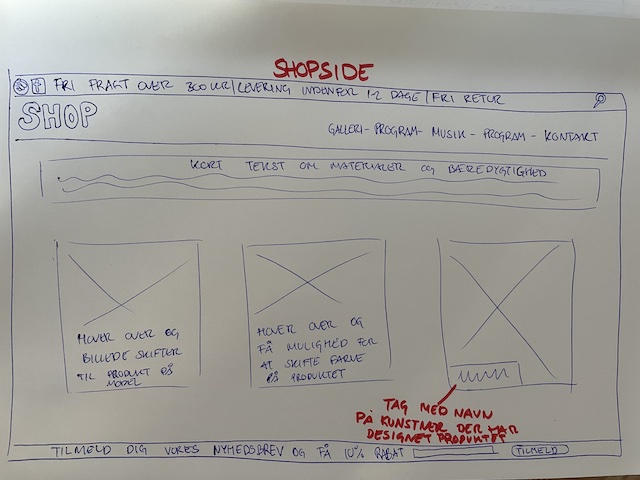 SHOPSIDE
FRI FRAGT OVER 300 KR | LEVERING INDENFOR 1-2 DAGE | FRI RETUR
SHOP
GALLERI - PROGRAM - MUSIK - PROGRAM - KONTAKT
KORT TEKST OM MATERIALER OG BÆREDYGTIGHED
HOVER OVER OG
BILLEDE SKIFTER
TIL PRODUKT PÅ
MODEL
HOVER OVER OG
FÅ MULIGHED FOR
AT SKIFTE FARVE
PÅ PRODUKTET
TAG MED NAVN
PÅ KUNSTNER DER HAR
DESIGNET PRODUKTET
TILMELD DIG VORES NYHEDSBREV OG FÅ 10% RABAT TILMELD